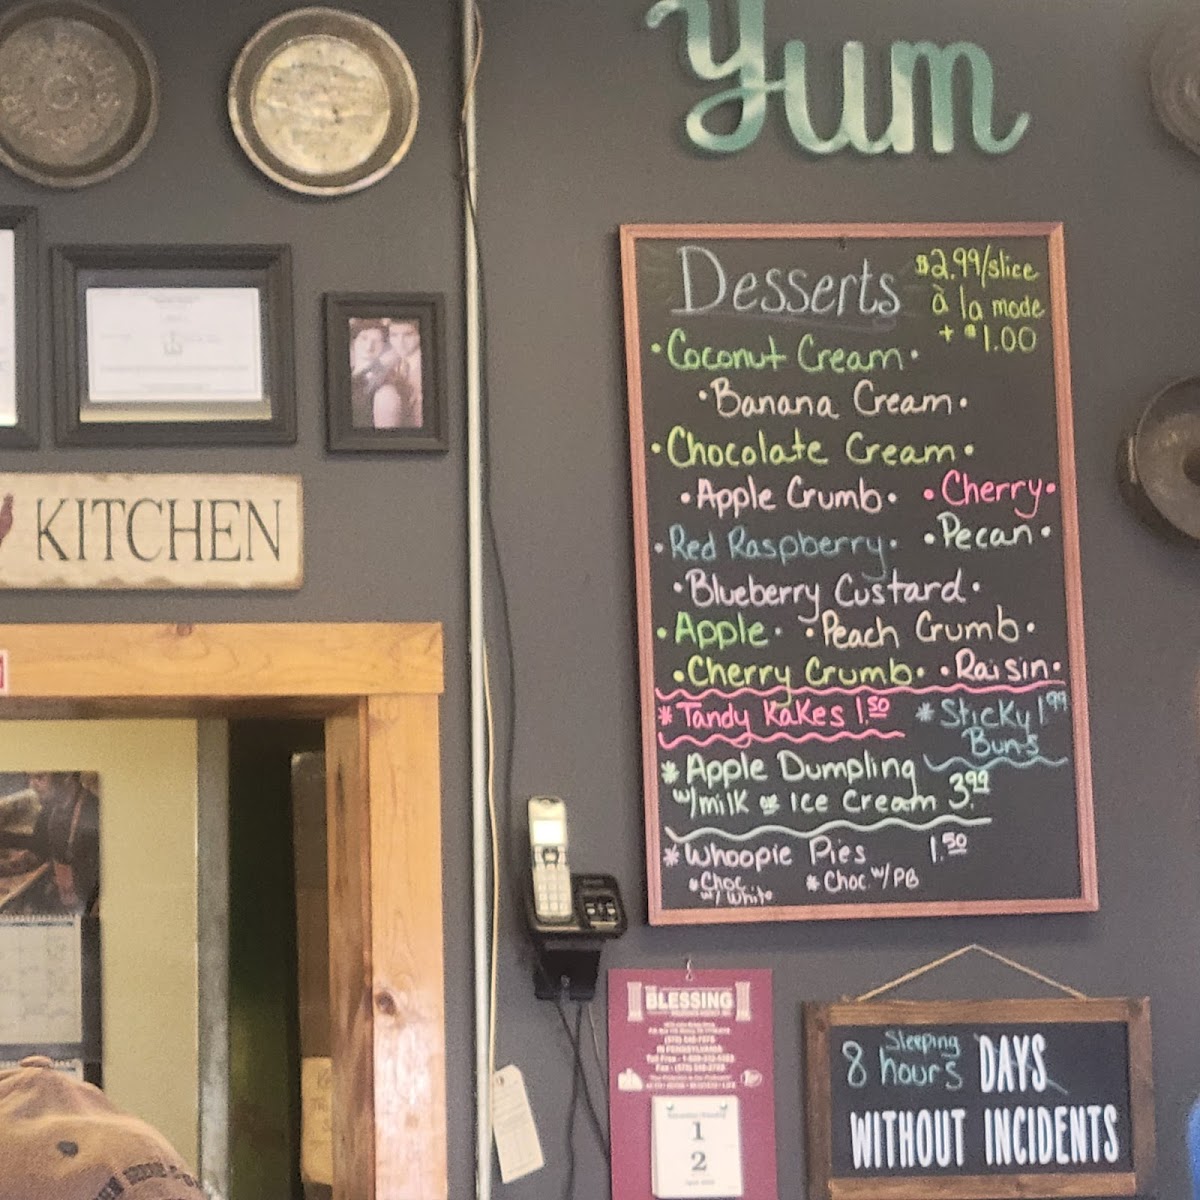 Yum
Desserts
$2.99/slice
à la mode
+ $1.00
•Coconut Cream•
•Banana Cream•
•Chocolate Cream•
•Apple Crumb• •Cherry•
•Red Raspberry• •Pecan•
•Blueberry Custard•
•Apple• •Peach Crumb•
•Cherry Crumb• •Raisin•
*Tandy Kakes 1.50 *Sticky 1.99
Buns
*Apple Dumpling
w/milk or Ice Cream 3.99
*Whoopie Pies 1.50
*Choc w/ White *Choc. w/PB
KITCHEN
BLESSING
IN PENNSYLVANIA
1
2
8 Sleeping hours DAYS
WITHOUT INCIDENTS